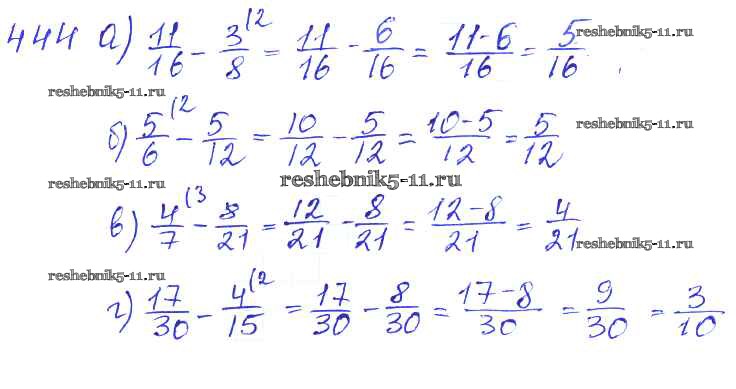 444 а) 11/16 - 3/8 (2 = 11/16 - 6/16 = 11-6/16 = 5/16 reshebnik5-11.ru
reshebnik5-11.ru
б) 5/6 (2 - 5/12 = 10/12 - 5/12 = 10-5/12 = 5/12 reshebnik5-11.ru
reshebnik5-11.ru reshebnik5-11.ru
в) 4/7 (3 - 8/21 = 12/21 - 8/21 = 12-8/21 = 4/21 reshebnik5-11.ru
reshebnik5-11.ru
г) 17/30 - 4/15 (2 = 17/30 - 8/30 = 17-8/30 = 9/30 = 3/10